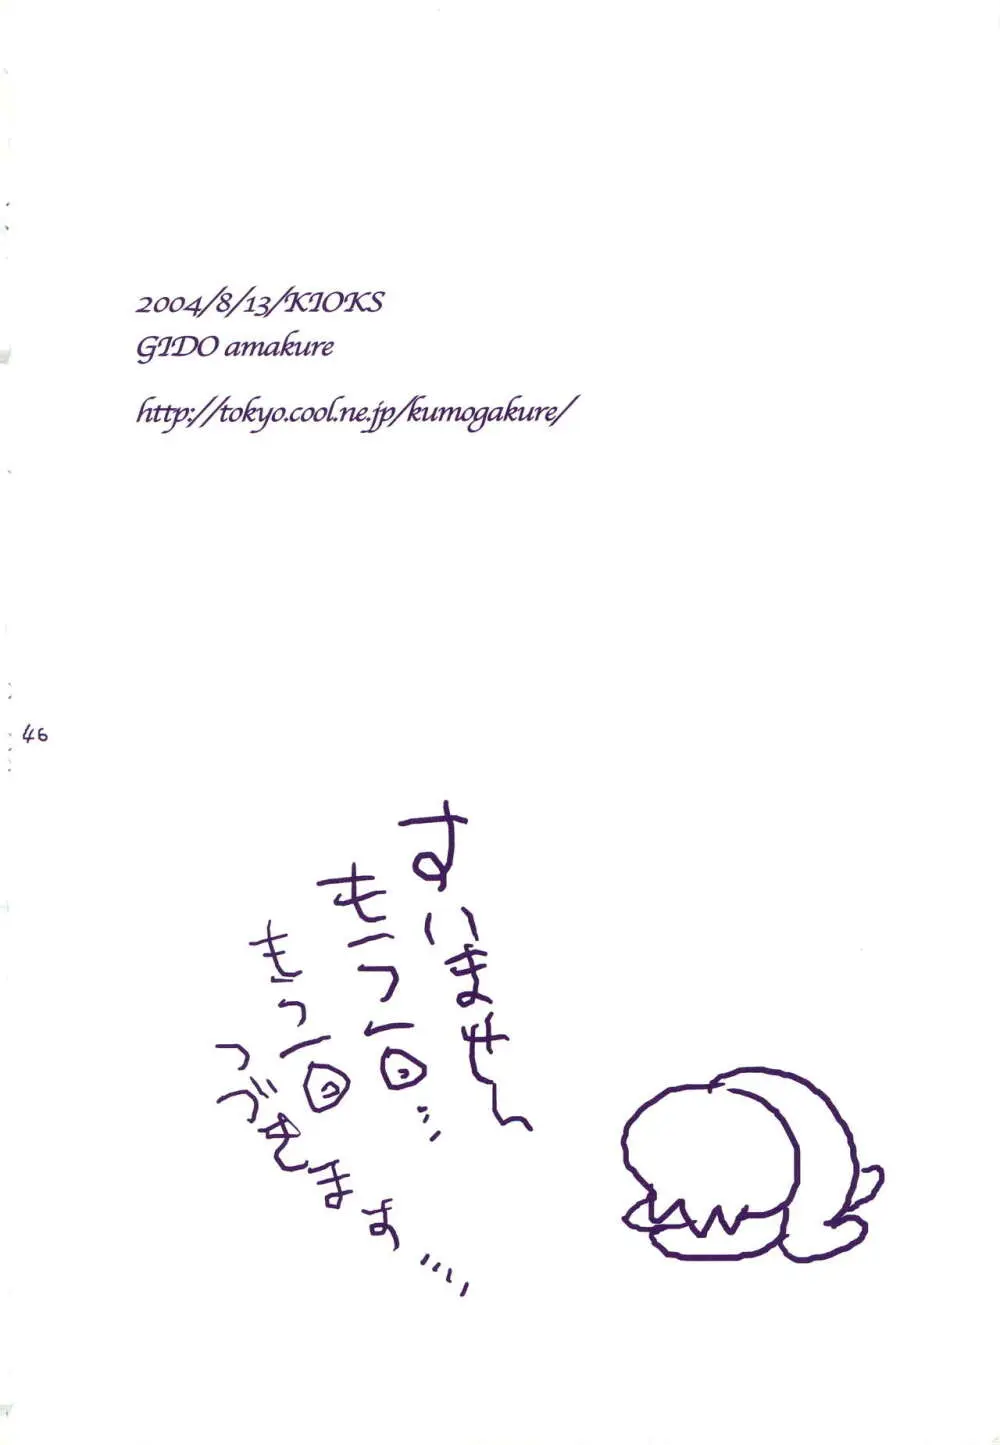 2004/8/13/KIOKS
GIDO amakure
http://tokyo.cool.ne.jp/kumogakure/
46
すいませ〜
もう1回…
もう1回
つづきます…